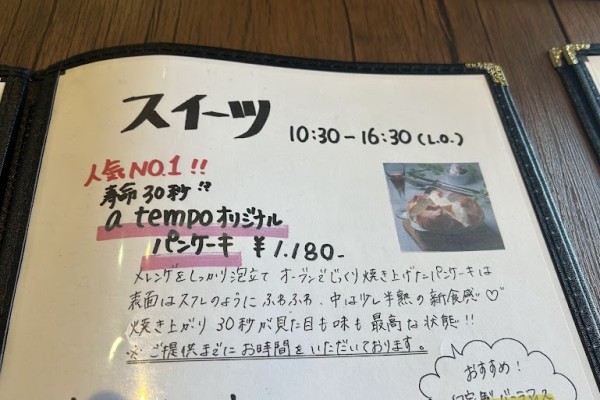 スイーツ
10:30-16:30 (L.O.)
人気NO.1!!
寿命30秒!?
a tempoオリジナル
パンケーキ ¥1.180-
メレンゲをしっかり泡立て オーブンでじっくり焼き上げたパンケーキは
表面はスフレのようにふわふわ、中は少し半熟の新食感♡
焼き上がり30秒が見た目も味も最高な状態!!
※ご提供までにお時間をいただいております。
おすすめ!